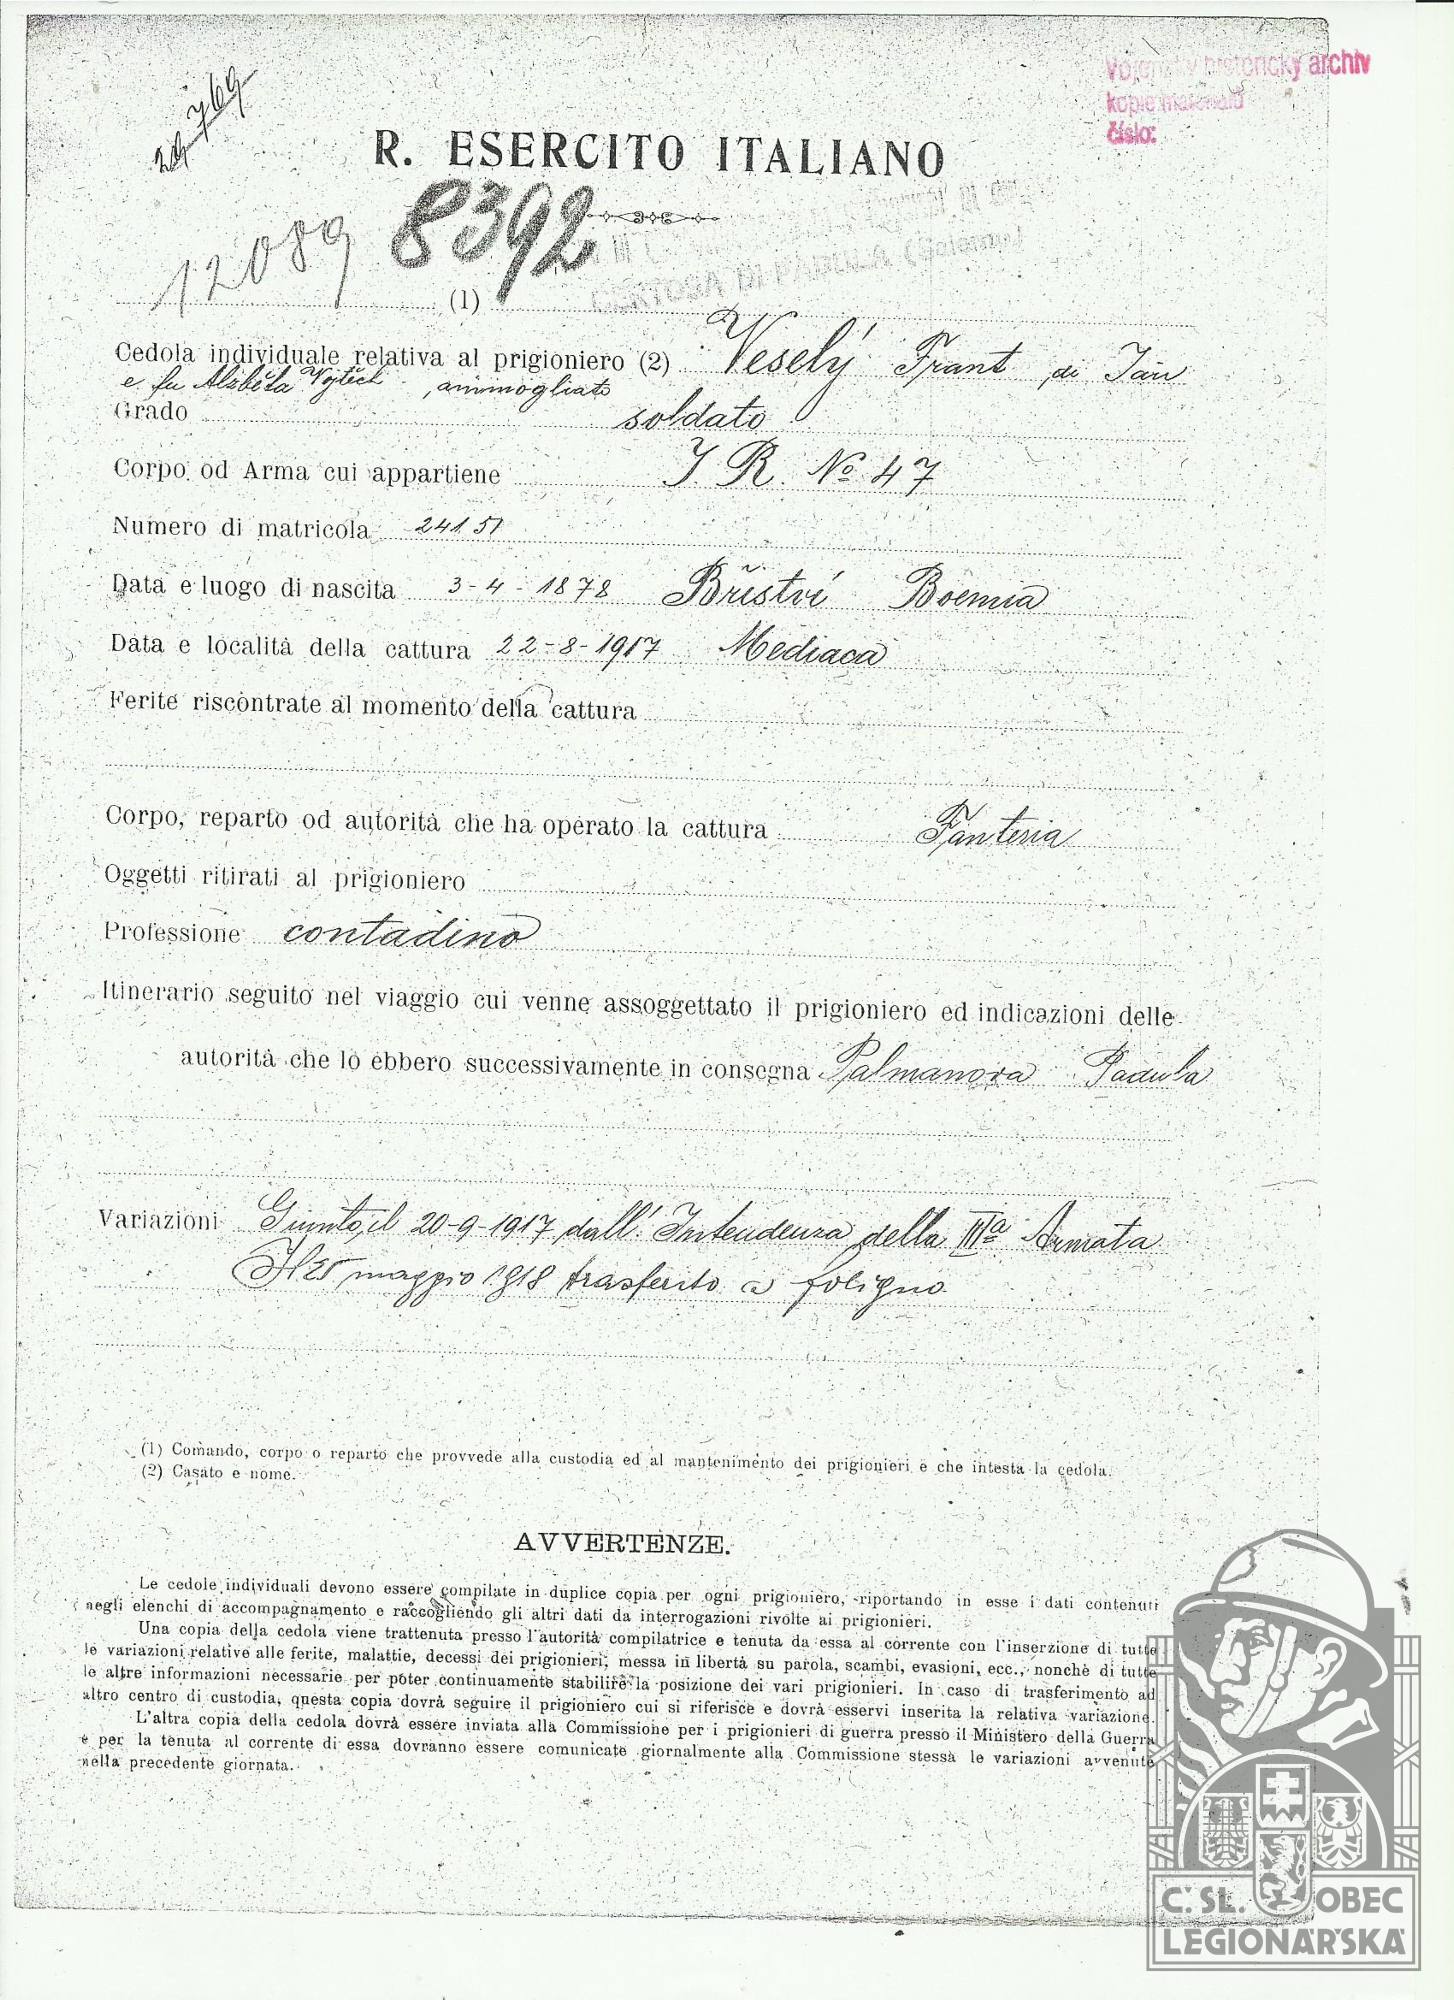 Vojenský historický archiv
kopie materiálu
číslo:
29769
R. ESERCITO ITALIANO
12089 8392
CERTOSA DI PADULA (Salerno)
(1)
Cedola individuale relativa al prigioniero (2) Veselý Frant di Jan
e fu Alzběta Vojtěch, ammogliato
Grado soldato
Corpo od Arma cui appartiene I R. No 47
Numero di matricola 24151
Data e luogo di nascita 3-4-1878 Břiství Boemia
Data e località della cattura 22-8-1917 Mediaca
Ferite riscontrate al momento della cattura
Corpo, reparto od autorità che ha operato la cattura Fanteria
Oggetti ritirati al prigioniero
Professione contadino
Itinerario seguito nel viaggio cui venne assoggettato il prigioniero ed indicazioni delle
autorità che lo ebbero successivamente in consegna Palmanova Padula
Variazioni Giunto il 20-9-1917 dall' Intendenza della IIIa Armata
Il 25 maggio 1918 trasferito a foligno
(1) Comando, corpo o reparto che provvede alla custodia ed al mantenimento dei prigionieri e che intesta la cedola.
(2) Casato e nome.
AVVERTENZE.
Le cedole individuali devono essere compilate in duplice copia per ogni prigioniero, riportando in esse i dati contenuti
negli elenchi di accompagnamento e raccogliendo gli altri dati da interrogazioni rivolte ai prigionieri.
Una copia della cedola viene trattenuta presso l'autorità compilatrice e tenuta da essa al corrente con l'inserzione di tutte
le variazioni relative alle ferite, malattie, decessi dei prigionieri, messa in libertà su parola, scambi, evasioni, ecc., nonchè di tutte
le altre informazioni necessarie per poter continuamente stabilire la posizione dei vari prigionieri. In caso di trasferimento ad
altro centro di custodia, questa copia dovrà seguire il prigioniero cui si riferisce e dovrà esservi inserita la relativa variazione.
L'altra copia della cedola dovrà essere inviata alla Commissione per i prigionieri di guerra presso il Ministero della Guerra
e per la tenuta al corrente di essa dovranno essere comunicate giornalmente alla Commissione stessa le variazioni avvenute
nella precedente giornata.
Č. SL. OBEC
LEGIONÁŘSKÁ